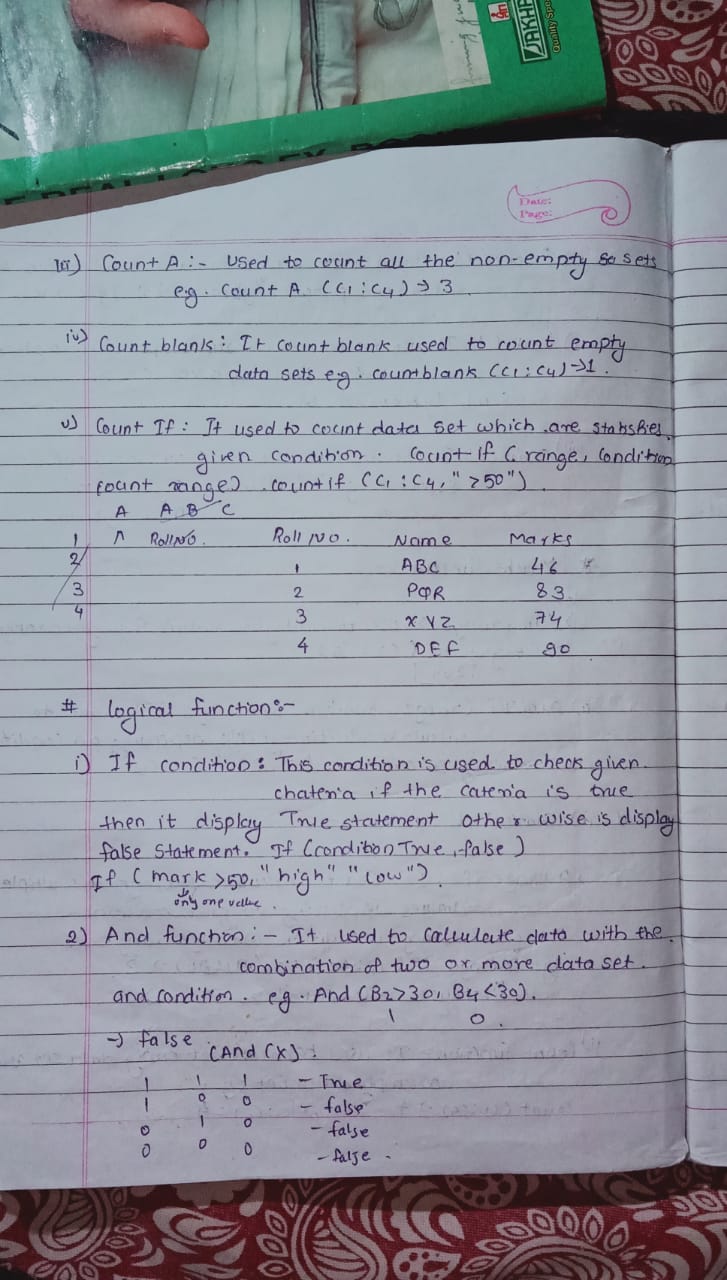 JAKHA
Quality
Date:
Page:
iii) Count A :- Used to count all the non-empty sets
eg. Count A (C1 : C4) → 3
iv) Count blank : It count blank used to count empty
data sets eg. countblank (C1 : C4) → 1.
v) Count If : It used to count data set which are statsfies
given condition. Count If (range, Condition
count range) countif (C1 : C4, ">50")
A A B C
1 A Roll NO. Roll NO. Name Marks
2 1 ABC 46
3 2 PQR 83
4 3 XYZ 74
4 DEF 90
# logical function :-
i) If condition : This condition is used to check given
chateria if the cateria is true
then it display True statement other wise is display
false Statement. If (condition True, false)
If (mark >50, "high" "low")
only one value.
2) And function :- It used to Calculate data with the
combination of two or more data set.
and condition. eg. And (B2>30, B4<30).
1 0.
→ false
(And (X) :
1 1 1 - True
1 0 0 - false
0 1 0 - false
0 0 0 - false.